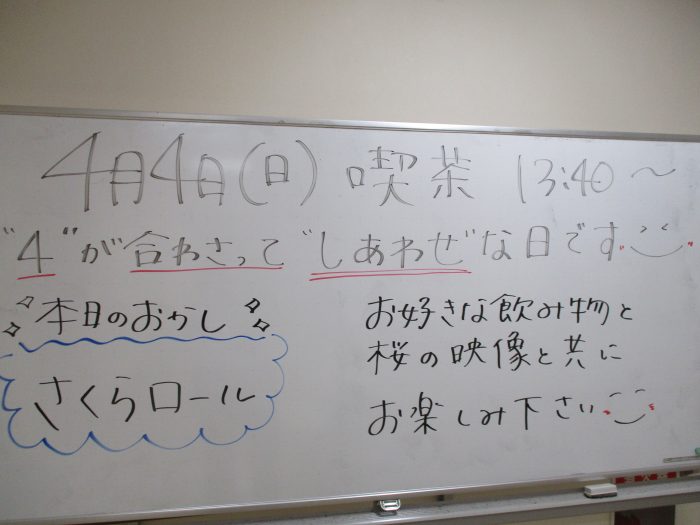 4月4日(日) 喫茶 13:40～
"4"が合わさって"しあわせ"な日です
本日のおかし
さくらロール
お好きな飲み物と
桜の映像と共に
お楽しみ下さい